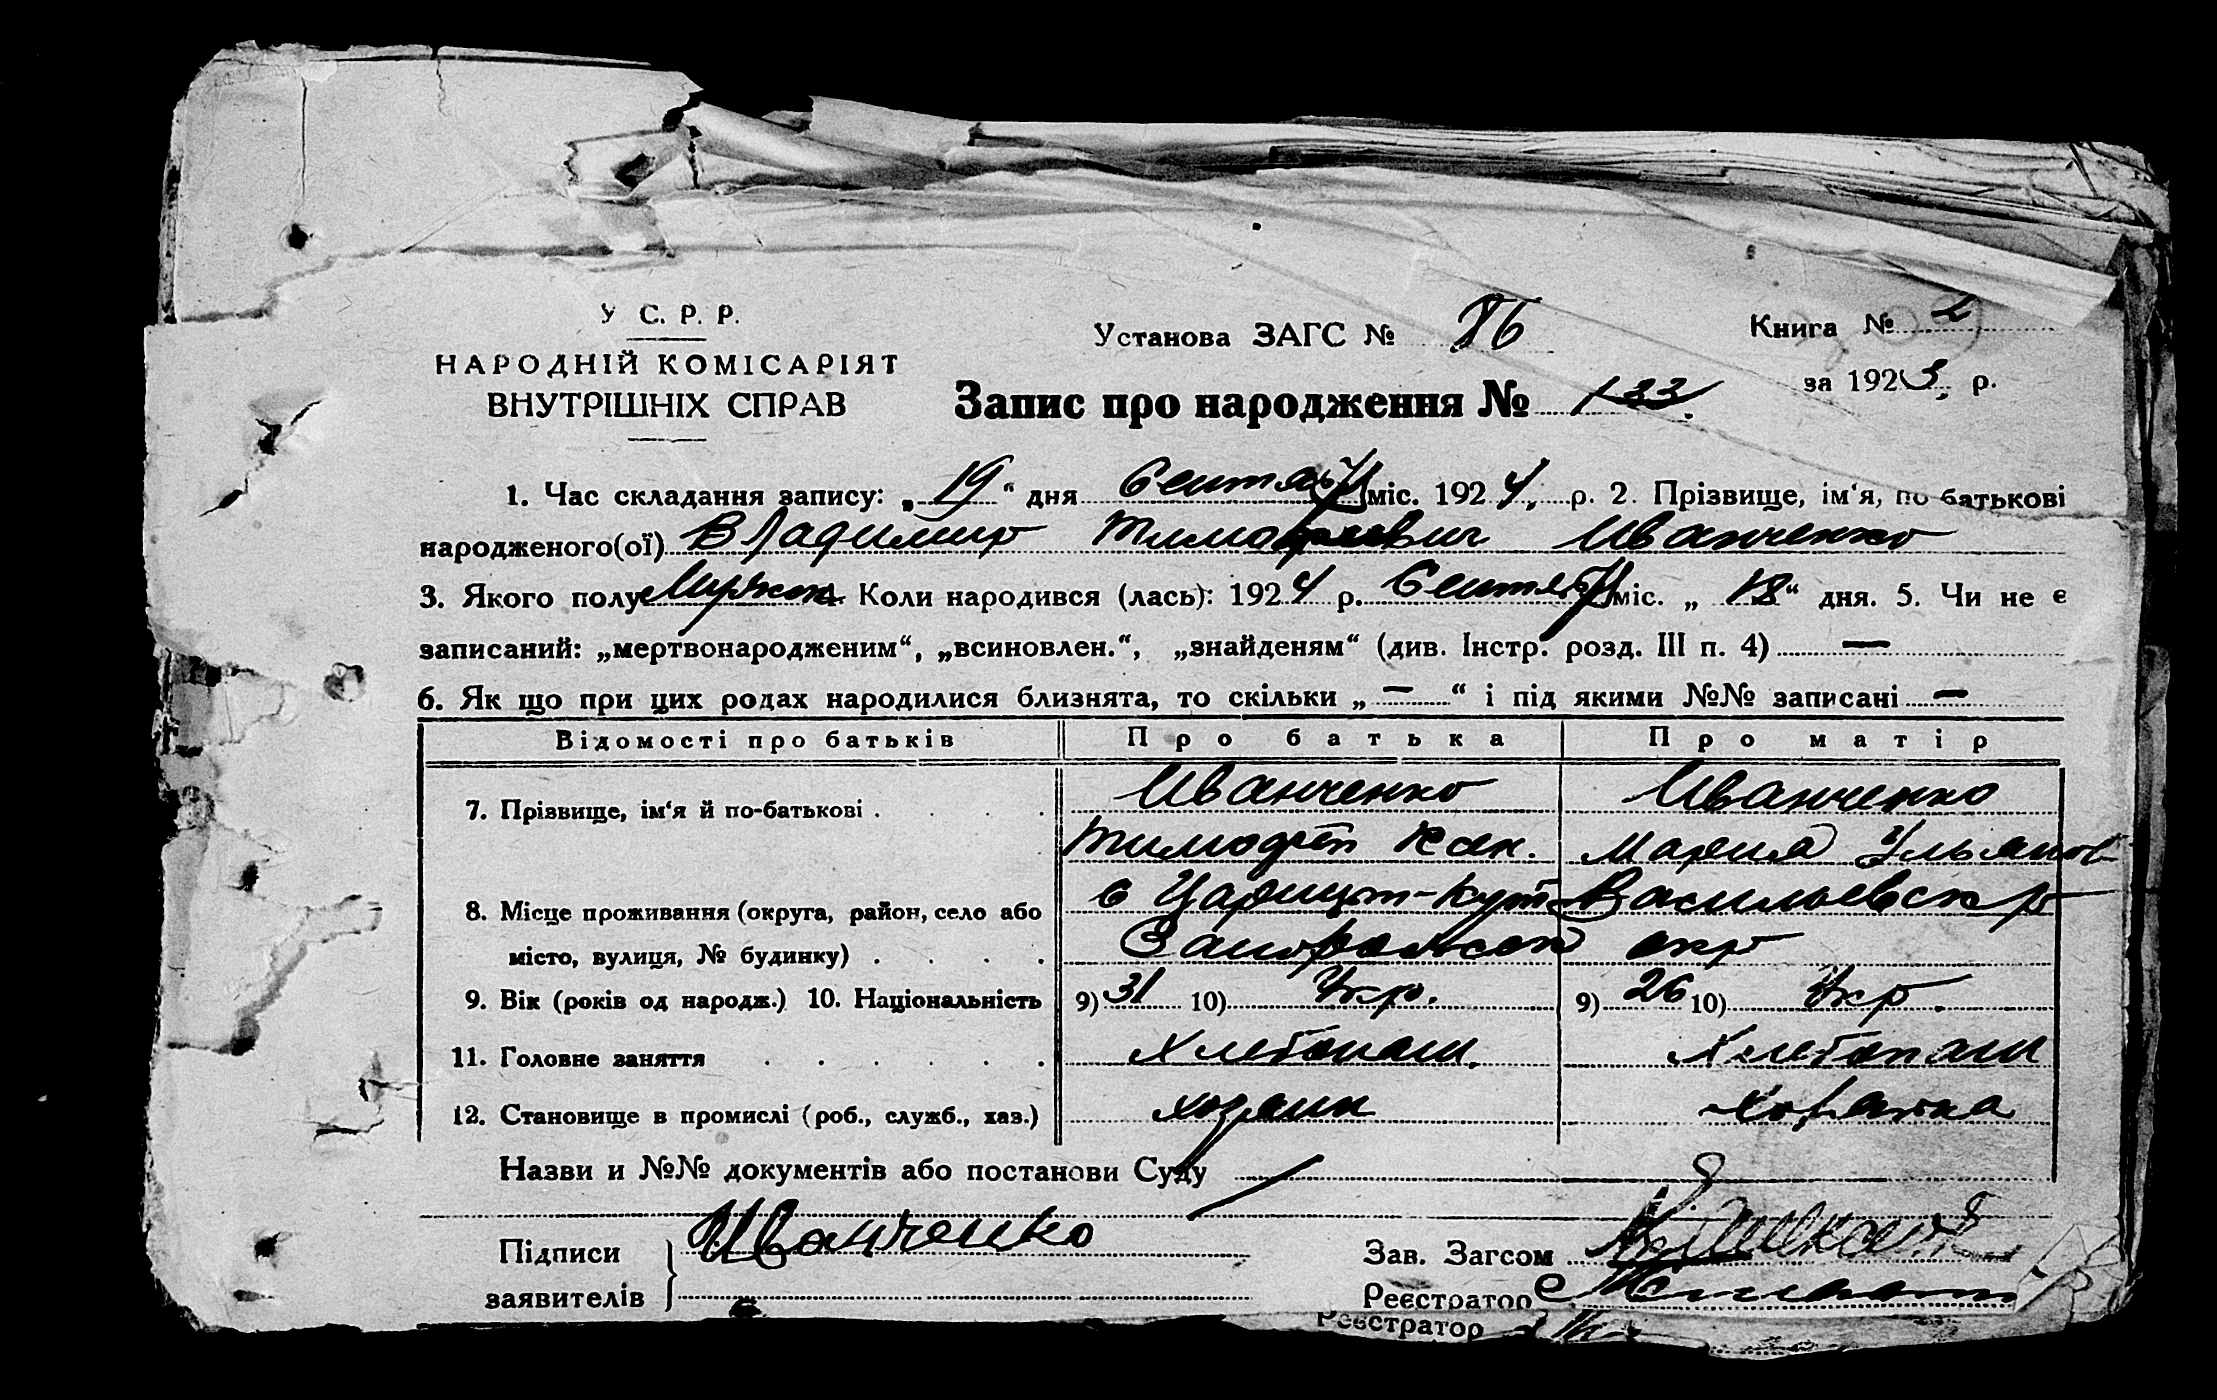 У С. Р. Р.
НАРОДНІЙ КОМІСАРІЯТ
ВНУТРІШНІХ СПРАВ
Установа ЗАГС № 86
Книга № 2
за 1923 р.
Запис про народження № 133
1. Час складання запису: „19“ дня Сентября міс. 1924 р. 2. Прізвище, ім‘я, по батькові
народженого(ої) Владимир Тимофеевич Иванченко
3. Якого полу Мужск 4. Коли народився (лась): 1924 р. Сентября міс. „18“ дня. 5. Чи не є
записаний: „мертвонародженим“, „всиновлен.“, „знайденям“ (див. Інстр. розд. III п. 4) —
6. Як що при цих родах народилися близнята, то скільки „—“ і під якими №№ записані —
Відомості про батьків Про батька Про матір
7. Прізвище, ім‘я й по-батькові . . . . Иванченко Иванченко
Тимофей Мария Ульянов
8. Місце проживання (округа, район, село або с Царицын-Кут Васильевск р
місто, вулиця, № будинку) . . . . Запорожской окр
9. Вік (років од народж.) 10. Національність 9) 31 10) Укр. 9) 26 10) Укр.
11. Головне заняття . . . . . . Хлебопаш. Хлебопаш
12. Становище в промислі (роб., служб., хаз.) хозяин хозяйка
Назви и №№ документів або постанови Суду
Підписи Иванченко Зав. Загсом
заявителів Реєстратор
Реєстратор